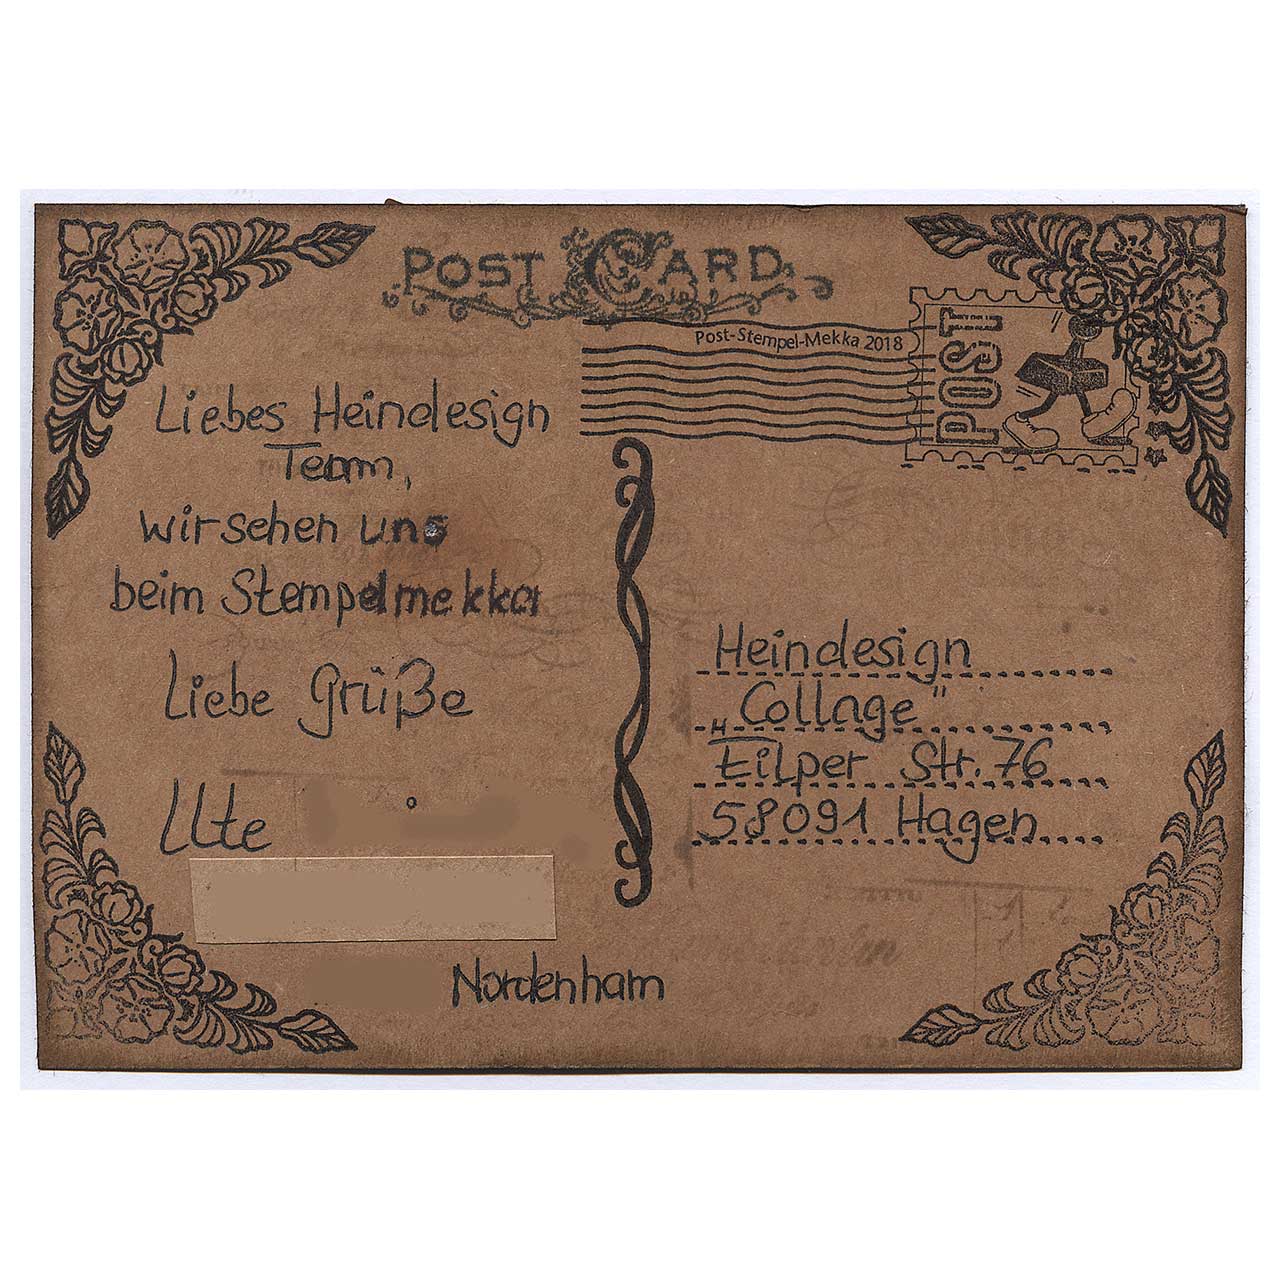 POST CARD
Post-Stempel-Mekka 2018
POST
Liebes Heindesign
Team,
wir sehen uns
beim Stempelmekka
Liebe Grüße
Ute
Nordenham
Heindesign
„Collage“
Eilper Str. 76
58091 Hagen